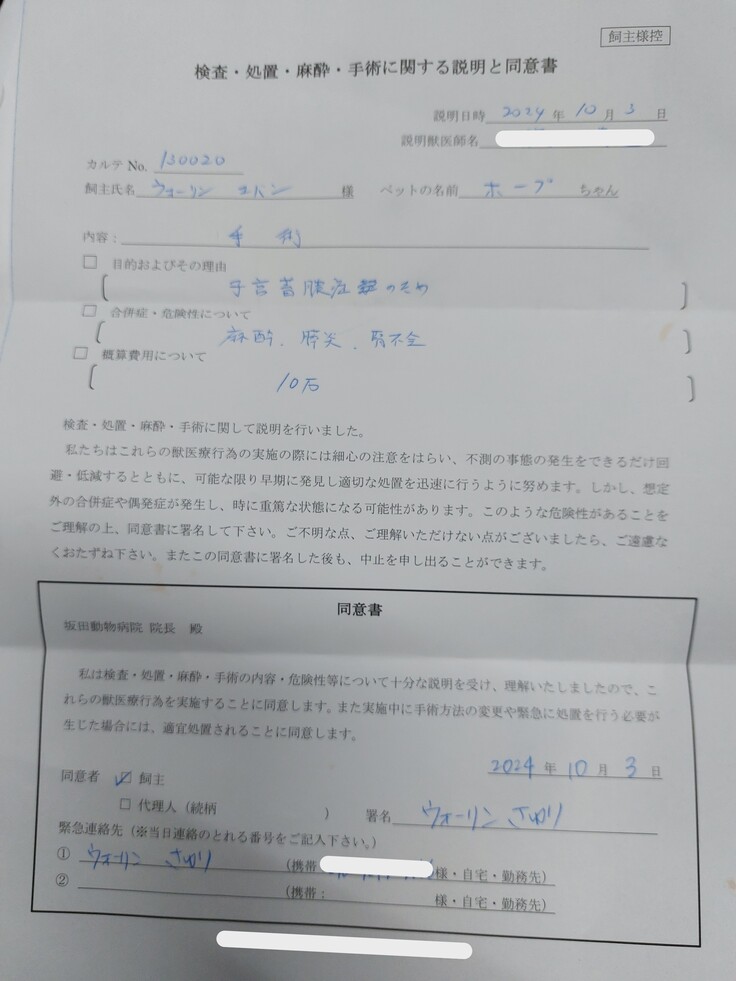 飼主様控
検査・処置・麻酔・手術に関する説明と同意書
説明日時 2024 年 10 月 3 日
説明獣医師名
カルテ No. 130020
飼主氏名 ウォーリン エバン 様 ペットの名前 ホープ ちゃん
内容: 手術
□ 目的およびその理由
子宮蓄膿症 のため
□ 合併症・危険性について
麻酔、膵炎、腎不全
□ 概算費用について
10万
検査・処置・麻酔・手術に関して説明を行いました。
私たちはこれらの獣医療行為の実施の際には細心の注意をはらい、不測の事態の発生をできるだけ回
避・低減するとともに、可能な限り早期に発見し適切な処置を迅速に行うように努めます。しかし、想定
外の合併症や偶発症が発生し、時に重篤な状態になる可能性があります。このような危険性があることを
ご理解の上、同意書に署名して下さい。ご不明な点、ご理解いただけない点がございましたら、ご遠慮な
くおたずね下さい。またこの同意書に署名した後も、中止を申し出ることができます。
同意書
坂田動物病院 院長 殿
私は検査・処置・麻酔・手術の内容・危険性等について十分な説明を受け、理解いたしましたので、こ
れらの獣医療行為を実施することに同意します。また実施中に手術方法の変更や緊急に処置を行う必要が
生じた場合には、適宜処置されることに同意します。
2024 年 10 月 3 日
同意者 ☑ 飼主
□ 代理人(続柄 ) 署名 ウォーリン さゆり
緊急連絡先(※当日連絡のとれる番号をご記入下さい。)
① ウォーリン さゆり (携帯 様・自宅・勤務先)
② (携帯: 様・自宅・勤務先)